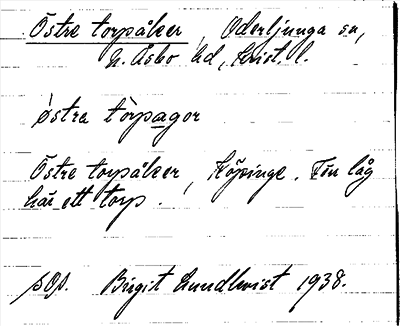 Östre torpåker, Oderljunga sn,
N. Åsbo hd, Krist. l.
östra tòrpagor
Östre torpåker, Köpinge. Förr låg
här ett torp.
Birgit Lundkvist 1938.